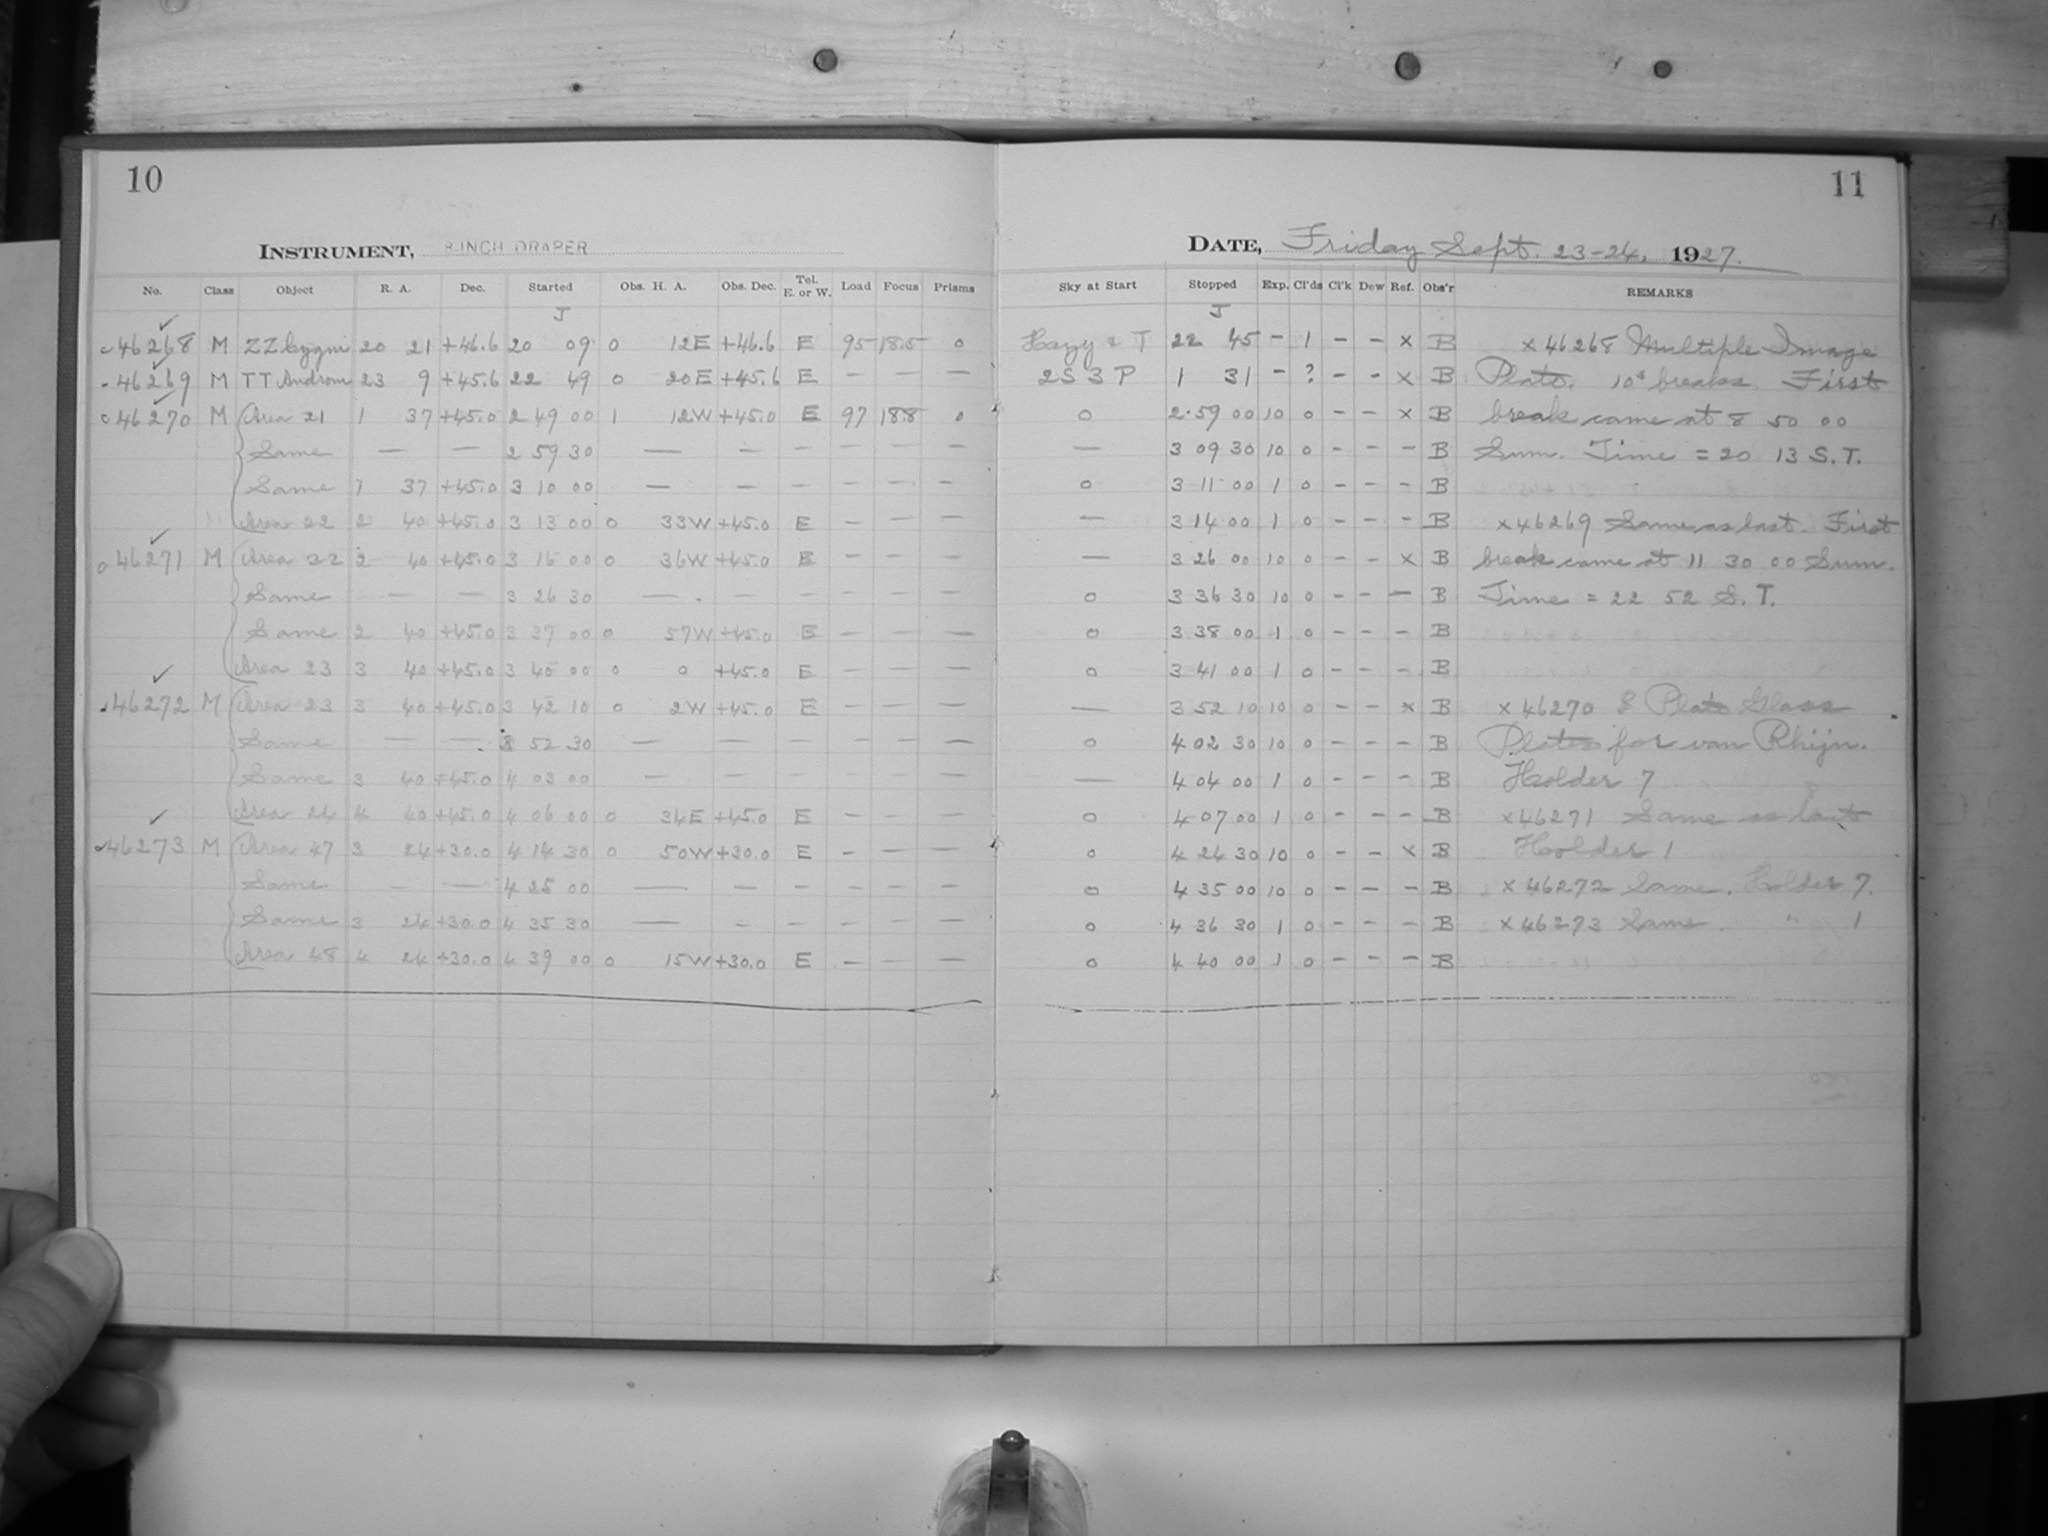 10
INSTRUMENT, 8-INCH DRAPER
No. Class Object R. A. Dec. Started Obs. H. A. Obs. Dec. Tel. E. or W. Load Focus Prisms
J
46268 M ZZ Cygni 20 21 +46.6 20 09 0 12E +46.6 E 95 18.5 0
46269 M TT Androm 23 9 +45.6 22 49 0 20E +45.6 E — — —
46270 M Area 21 1 37 +45.0 2 49 00 1 12W +45.0 E 97 18.8 0
Same — — 2 59 30 — — — — — —
Same 1 37 +45.0 3 10 00 — — — — — —
Area 22 2 40 +45.0 3 13 00 0 33W +45.0 E — — —
46271 M Area 22 2 40 +45.0 3 16 00 0 36W +45.0 E — — —
Same — — 3 26 30 — — — — — —
Same 2 40 +45.0 3 37 00 0 57W +45.0 E — — —
Area 23 3 40 +45.0 3 40 00 0 0 +45.0 E — — —
46272 M Area 23 3 40 +45.0 3 42 10 0 2W +45.0 E — — —
Same — — 3 52 30 — — — — — —
Same 3 40 +45.0 4 03 00 — — — — — —
Area 24 4 40 +45.0 4 06 00 0 34E +45.0 E — — —
46273 M Area 47 3 24 +30.0 4 14 30 0 50W +30.0 E — — —
Same — — 4 25 00 — — — — — —
Same 3 24 +30.0 4 35 30 — — — — — —
Area 48 4 24 +30.0 4 39 00 0 15W +30.0 E — — —
11
DATE, Friday Sept. 23-24, 1927.
Sky at Start Stopped Exp. Cl'ds Cl'k Dew Ref. Obs'r REMARKS
J
Hazy & T 22 45 — 1 — — x B x 46268 Multiple Image
2S 3 P 1 31 — ? — — x B Plate. 10s breaks. First
0 2 59 00 10 0 — — x B break came at 8 50 00
— 3 09 30 10 0 — — — B Sum. Time = 20 13 S.T.
0 3 11 00 1 0 — — — B
— 3 14 00 1 0 — — — B x 46269 Same as last. First
— 3 26 00 10 0 — — x B break came at 11 30 00 Sum.
0 3 36 30 10 0 — — — B Time = 22 52 S.T.
0 3 38 00 1 0 — — — B
0 3 41 00 1 0 — — — B
— 3 52 10 10 0 — — x B x 46270 Plate Glass
0 4 02 30 10 0 — — — B Plates for van Rhijn.
— 4 04 00 1 0 — — — B Holder 7
0 4 07 00 1 0 — — — B x 46271 Same as last
0 4 24 30 10 0 — — x B Holder 1
0 4 35 00 10 0 — — — B x 46272 Same. Holder 7.
0 4 36 30 1 0 — — — B x 46273 Same. " 1
0 4 40 00 1 0 — — — B